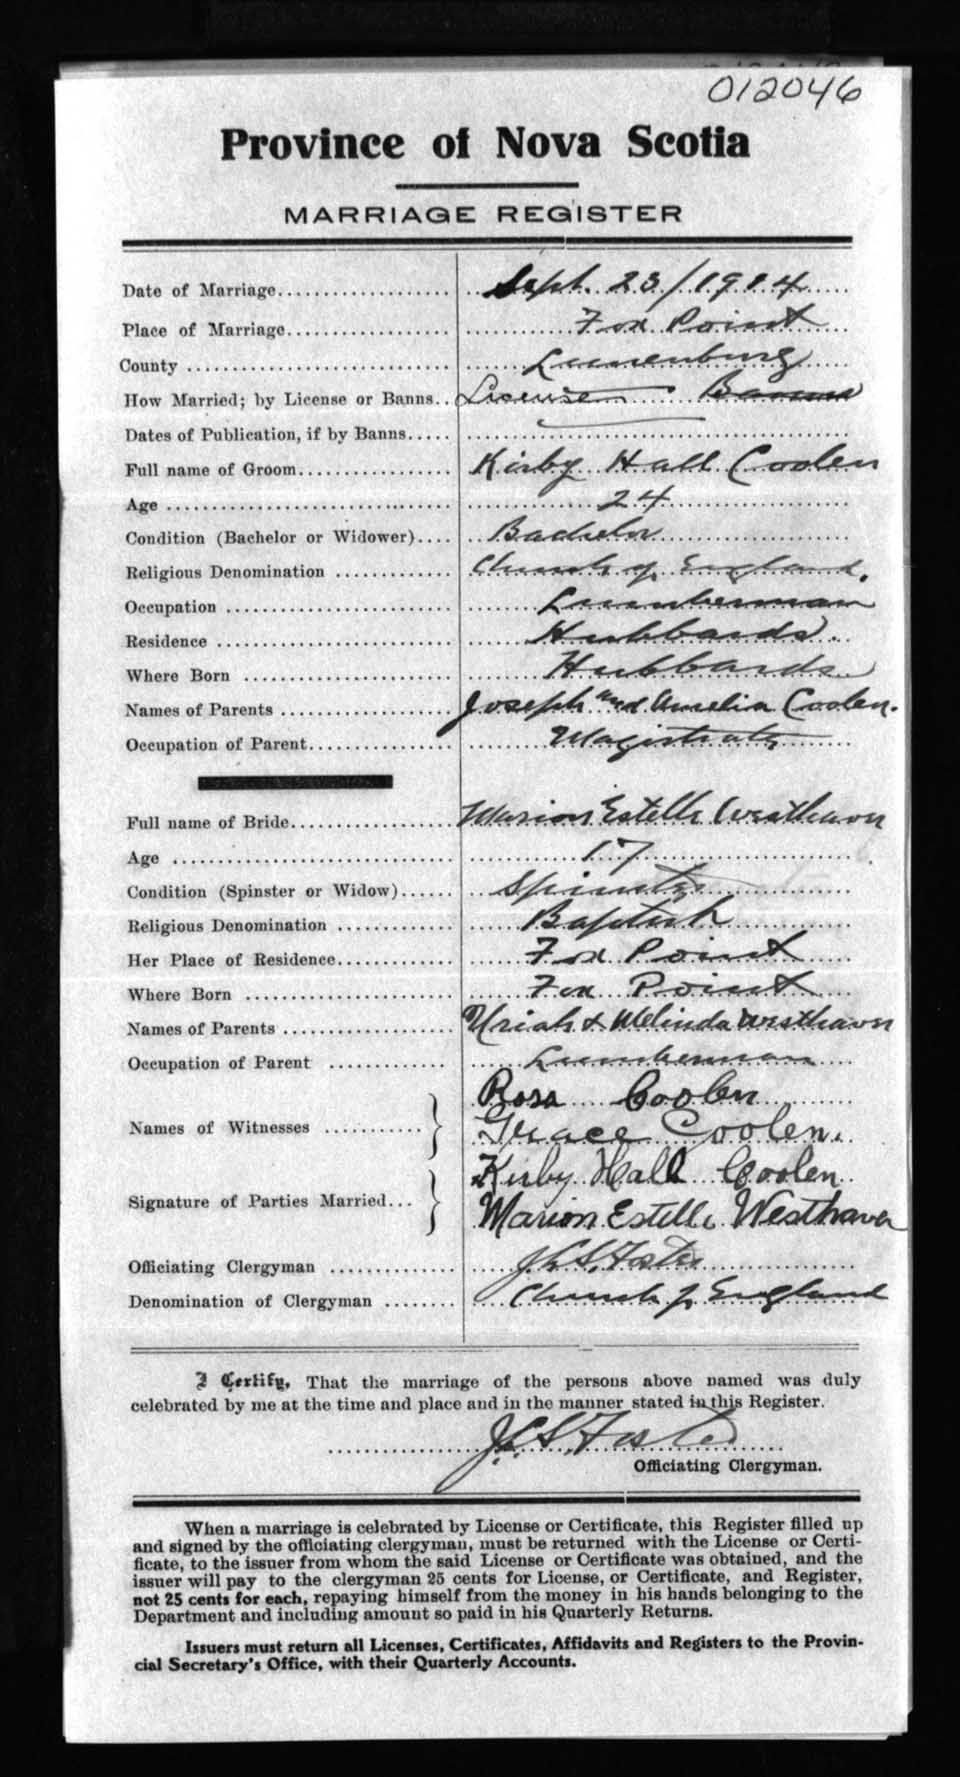 012046
Province of Nova Scotia
MARRIAGE REGISTER
Date of Marriage Sept. 23/1914
Place of Marriage Fox Point
County Lunenburg
How Married; by License or Banns License Banns
Dates of Publication, if by Banns
Full name of Groom Kirby Hall Coolen
Age 24
Condition (Bachelor or Widower) Bachelor
Religious Denomination Church of England.
Occupation Lumberman
Residence Hubbards.
Where Born Hubbards
Names of Parents Joseph and Amelia Coolen.
Occupation of Parent Magistrate
Full name of Bride Marion Estelle Westhaver
Age 17
Condition (Spinster or Widow) Spinster
Religious Denomination Baptist
Her Place of Residence Fox Point
Where Born Fox Point
Names of Parents Uriah & Melinda Westhaver
Occupation of Parent Lumberman
Rosa Coolen
Names of Witnesses
Grace Coolen.
Kirby Hall Coolen
Signature of Parties Married
Marion Estelle Westhaver
Officiating Clergyman J.L.S. Foster
Denomination of Clergyman Church of England
I Certify, That the marriage of the persons above named was duly
celebrated by me at the time and place and in the manner stated in this Register.
J.L.S. Foster
Officiating Clergyman.
When a marriage is celebrated by License or Certificate, this Register filled up
and signed by the officiating clergyman, must be returned with the License or Certi-
ficate, to the issuer from whom the said License or Certificate was obtained, and the
issuer will pay to the clergyman 25 cents for License, or Certificate, and Register,
not 25 cents for each, repaying himself from the money in his hands belonging to the
Department and including amount so paid in his Quarterly Returns.
Issuers must return all Licenses, Certificates, Affidavits and Registers to the Provin-
cial Secretary's Office, with their Quarterly Accounts.